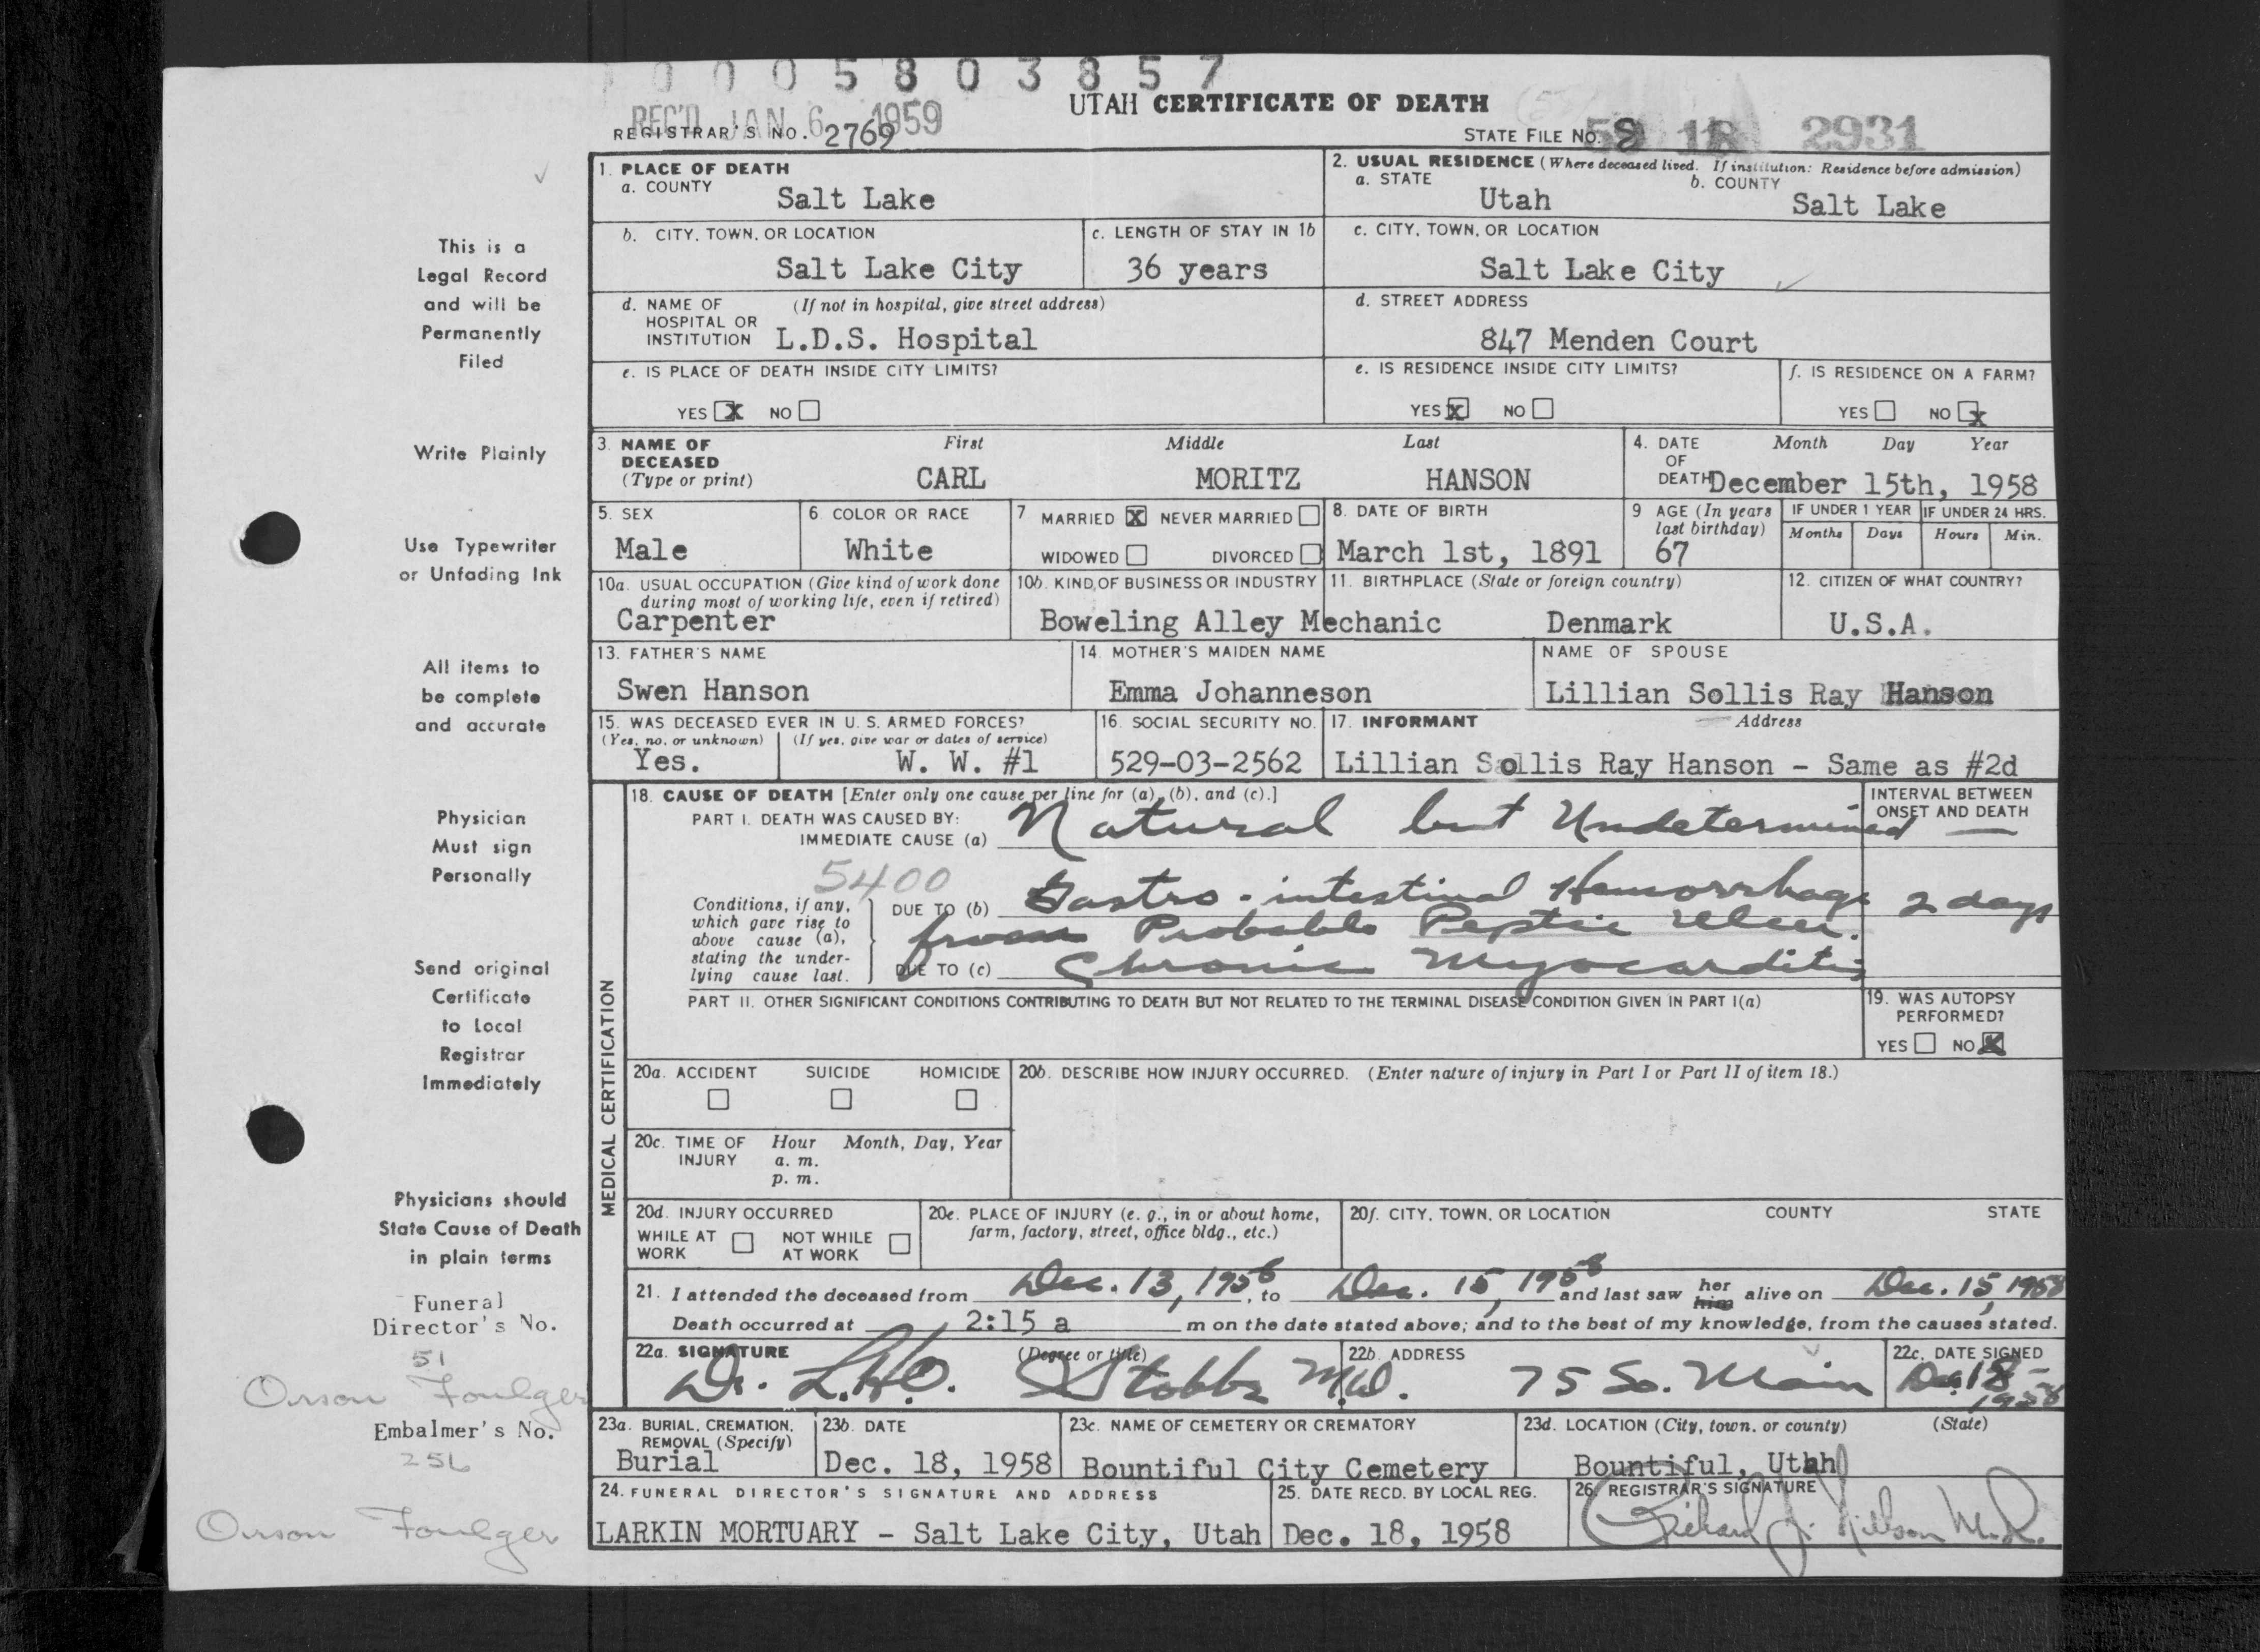 0 0 0 5 8 0 3 8 5 7
REC'D JAN 6 1959
UTAH CERTIFICATE OF DEATH
REGISTRAR'S NO. 2769
STATE FILE NO. 18 2931
1. PLACE OF DEATH
a. COUNTY
Salt Lake
2. USUAL RESIDENCE (Where deceased lived. If institution: Residence before admission)
a. STATE
Utah
b. COUNTY
Salt Lake
b. CITY, TOWN, OR LOCATION
Salt Lake City
c. LENGTH OF STAY IN 1b
36 years
c. CITY, TOWN, OR LOCATION
Salt Lake City
d. NAME OF HOSPITAL OR INSTITUTION (If not in hospital, give street address)
L.D.S. Hospital
d. STREET ADDRESS
847 Menden Court
e. IS PLACE OF DEATH INSIDE CITY LIMITS?
YES X NO
e. IS RESIDENCE INSIDE CITY LIMITS?
YES X NO
f. IS RESIDENCE ON A FARM?
YES NO X
3. NAME OF DECEASED (Type or print)
First Middle Last
CARL MORITZ HANSON
4. DATE OF DEATH Month Day Year
December 15th, 1958
5. SEX
Male
6 COLOR OR RACE
White
7 MARRIED X NEVER MARRIED
WIDOWED DIVORCED
8. DATE OF BIRTH
March 1st, 1891
9 AGE (In years last birthday)
67
IF UNDER 1 YEAR IF UNDER 24 HRS.
Months Days Hours Min.
10a. USUAL OCCUPATION (Give kind of work done during most of working life, even if retired)
Carpenter
10b. KIND OF BUSINESS OR INDUSTRY
Boweling Alley Mechanic
11. BIRTHPLACE (State or foreign country)
Denmark
12. CITIZEN OF WHAT COUNTRY?
U.S.A.
13. FATHER'S NAME
Swen Hanson
14. MOTHER'S MAIDEN NAME
Emma Johanneson
NAME OF SPOUSE
Lillian Sollis Ray Hanson
15. WAS DECEASED EVER IN U. S. ARMED FORCES?
(Yes, no, or unknown) (If yes, give war or dates of service)
Yes. W. W. #1
16. SOCIAL SECURITY NO.
529-03-2562
17. INFORMANT Address
Lillian Sollis Ray Hanson - Same as #2d
MEDICAL CERTIFICATION
18. CAUSE OF DEATH [Enter only one cause per line for (a), (b), and (c).]
INTERVAL BETWEEN ONSET AND DEATH
PART I. DEATH WAS CAUSED BY:
IMMEDIATE CAUSE (a) Natural but Undetermined —
5400
Conditions, if any, which gave rise to above cause (a), stating the underlying cause last.
DUE TO (b) Gastro-intestinal Hemorrhage 2 days
from Probable Peptic Ulcer.
DUE TO (c) Chronic Myocarditis
PART II. OTHER SIGNIFICANT CONDITIONS CONTRIBUTING TO DEATH BUT NOT RELATED TO THE TERMINAL DISEASE CONDITION GIVEN IN PART I(a)
19. WAS AUTOPSY PERFORMED?
YES NO X
20a. ACCIDENT SUICIDE HOMICIDE
20b. DESCRIBE HOW INJURY OCCURRED. (Enter nature of injury in Part I or Part II of item 18.)
20c. TIME OF INJURY Hour Month, Day, Year
a. m.
p. m.
20d. INJURY OCCURRED
WHILE AT WORK NOT WHILE AT WORK
20e. PLACE OF INJURY (e. g., in or about home, farm, factory, street, office bldg., etc.)
20f. CITY, TOWN, OR LOCATION COUNTY STATE
21. I attended the deceased from Dec. 13, 1958, to Dec. 15, 1958 and last saw her him alive on Dec. 15, 1958
Death occurred at 2:15 a m on the date stated above; and to the best of my knowledge, from the causes stated.
22a. SIGNATURE (Degree or title)
Dr. L.H.O. Stobbe M.D.
22b. ADDRESS
75 So. Main
22c. DATE SIGNED
Dec 18 - 1958
23a. BURIAL, CREMATION, REMOVAL (Specify)
Burial
23b. DATE
Dec. 18, 1958
23c. NAME OF CEMETERY OR CREMATORY
Bountiful City Cemetery
23d. LOCATION (City, town, or county) (State)
Bountiful, Utah
24. FUNERAL DIRECTOR'S SIGNATURE AND ADDRESS
LARKIN MORTUARY - Salt Lake City, Utah
25. DATE RECD. BY LOCAL REG.
Dec. 18, 1958
26. REGISTRAR'S SIGNATURE
Richard J. Nelson M.D.
This is a
Legal Record
and will be
Permanently
Filed
Write Plainly
Use Typewriter
or Unfading Ink
All items to
be complete
and accurate
Physician
Must sign
Personally
Send original
Certificate
to Local
Registrar
Immediately
Physicians should
State Cause of Death
in plain terms
Funeral
Director's No.
51
Orson Foulger
Embalmer's No.
256
Orson Foulger